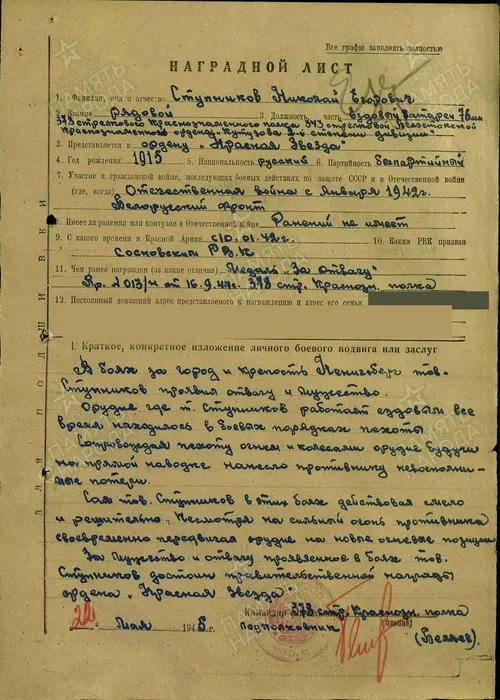 Все графы заполнять полностью
НАГРАДНОЙ ЛИСТ
1. Фамилия, имя и отчество Ступников Николай Егорович
2. Звание рядовой 3. Должность, часть ездовый батареи 76мм
378 стрелкового Краснознаменного полка 343 стрелковой Белостокской
краснознаменного ордена „Кутузова 2-й степени дивизии“
3. Представляется к ордену „Красная Звезда“
4. Год рождения 1915 5. Национальность русский 6. Партийность беспартийный
7. Участие в гражданской войне, последующих боевых действиях по защите СССР и в Отечественной войне
(где, когда) Отечественная война с Января 1942г.
Белорусский фронт
8. Имеет ли ранения или контузии в Отечественной войне Ранений не имеет
9. С какого времени в Красной Армии с 10.01.42г. 10. Каким РВК призван
Сосновским РВК
11. Чем ранее награжден (за какие отличия) Медаль „За отвагу“
Пр. 2013/н от 16.9.44г. 378 стр. Краснозн. полка
12. Постоянный домашний адрес представляемого к награждению и адрес его семьи
I. Краткое, конкретное изложение личного боевого подвига или заслуг
В боях за город и крепость Кенигсберг тов.
Ступников проявил отвагу и мужество.
Орудие где т. Ступников работает ездовым все
время находилось в боевых порядках пехоты
Сопровождая пехоту огнем и колесами орудие будучи
на прямой наводке нанесло противнику невосполни-
мые потери.
Сам тов. Ступников в этих боях действовал смело
и решительно. Несмотря на сильный огонь противника
своевременно передвигал орудие на новые огневые позиции
За мужество и отвагу проявленное в боях тов.
Ступников достоин правительственной награды
ордена „Красная Звезда“
Командир 378 стр. Краснозн. полка
22 Мая 1945 г. подполковник (звание)
(Беляев)
ДЛЯ ПОДШИВКИ
ПАМЯТЬ НАРОДА